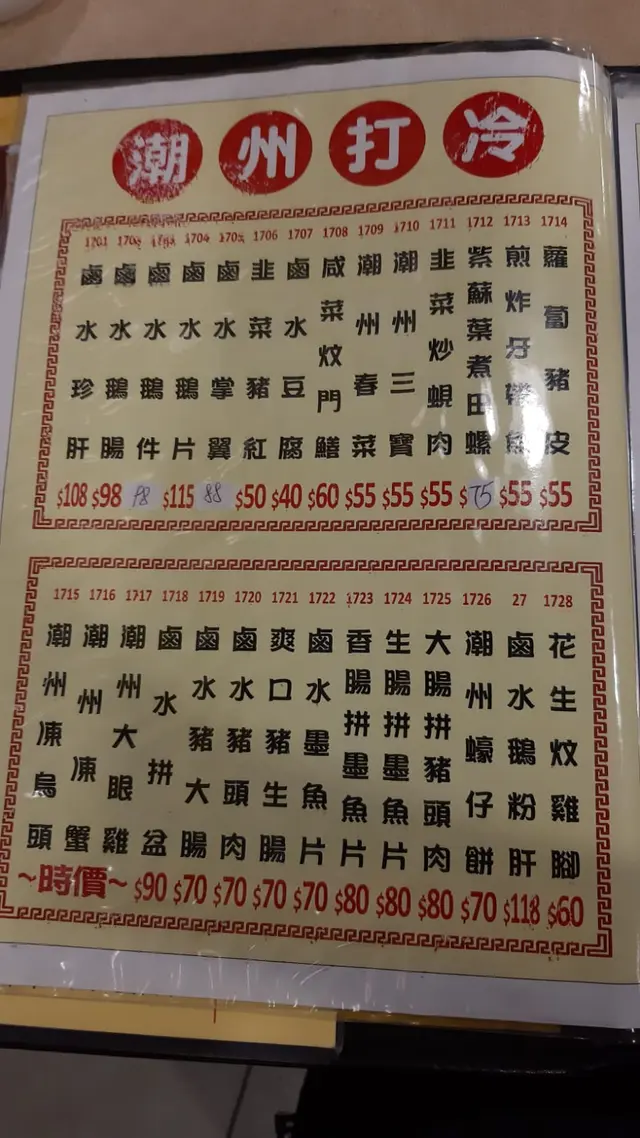 潮州打冷
1701 1702 1703 1704 1705 1706 1707 1708 1709 1710 1711 1712 1713 1714
鹵水珍肝
鹵水鵝腸
鹵水鵝件
鹵水鵝片
鹵水掌翼
韭菜豬紅
鹵水豆腐
咸菜炆門鱔
潮州春菜
潮州三寶
韭菜炒蜆肉
紫蘇葉煮田螺
煎炸牙帶魚
蘿蔔豬皮
$108 $98 98 $115 88 $50 $40 $60 $55 $55 $55 $75 $55 $55
1715 1716 1717 1718 1719 1720 1721 1722 1723 1724 1725 1726 27 1728
潮州凍烏頭
潮州凍蟹
潮州大眼雞
鹵水拼盆
鹵水豬大腸
鹵水豬頭肉
爽口豬生腸
鹵水墨魚片
香腸拼墨魚片
生腸拼墨魚片
大腸拼豬頭肉
潮州蠔仔餅
鹵水鵝粉肝
花生炆雞腳
~時價~ $90 $70 $70 $70 $70 $80 $80 $80 $70 $118 $60